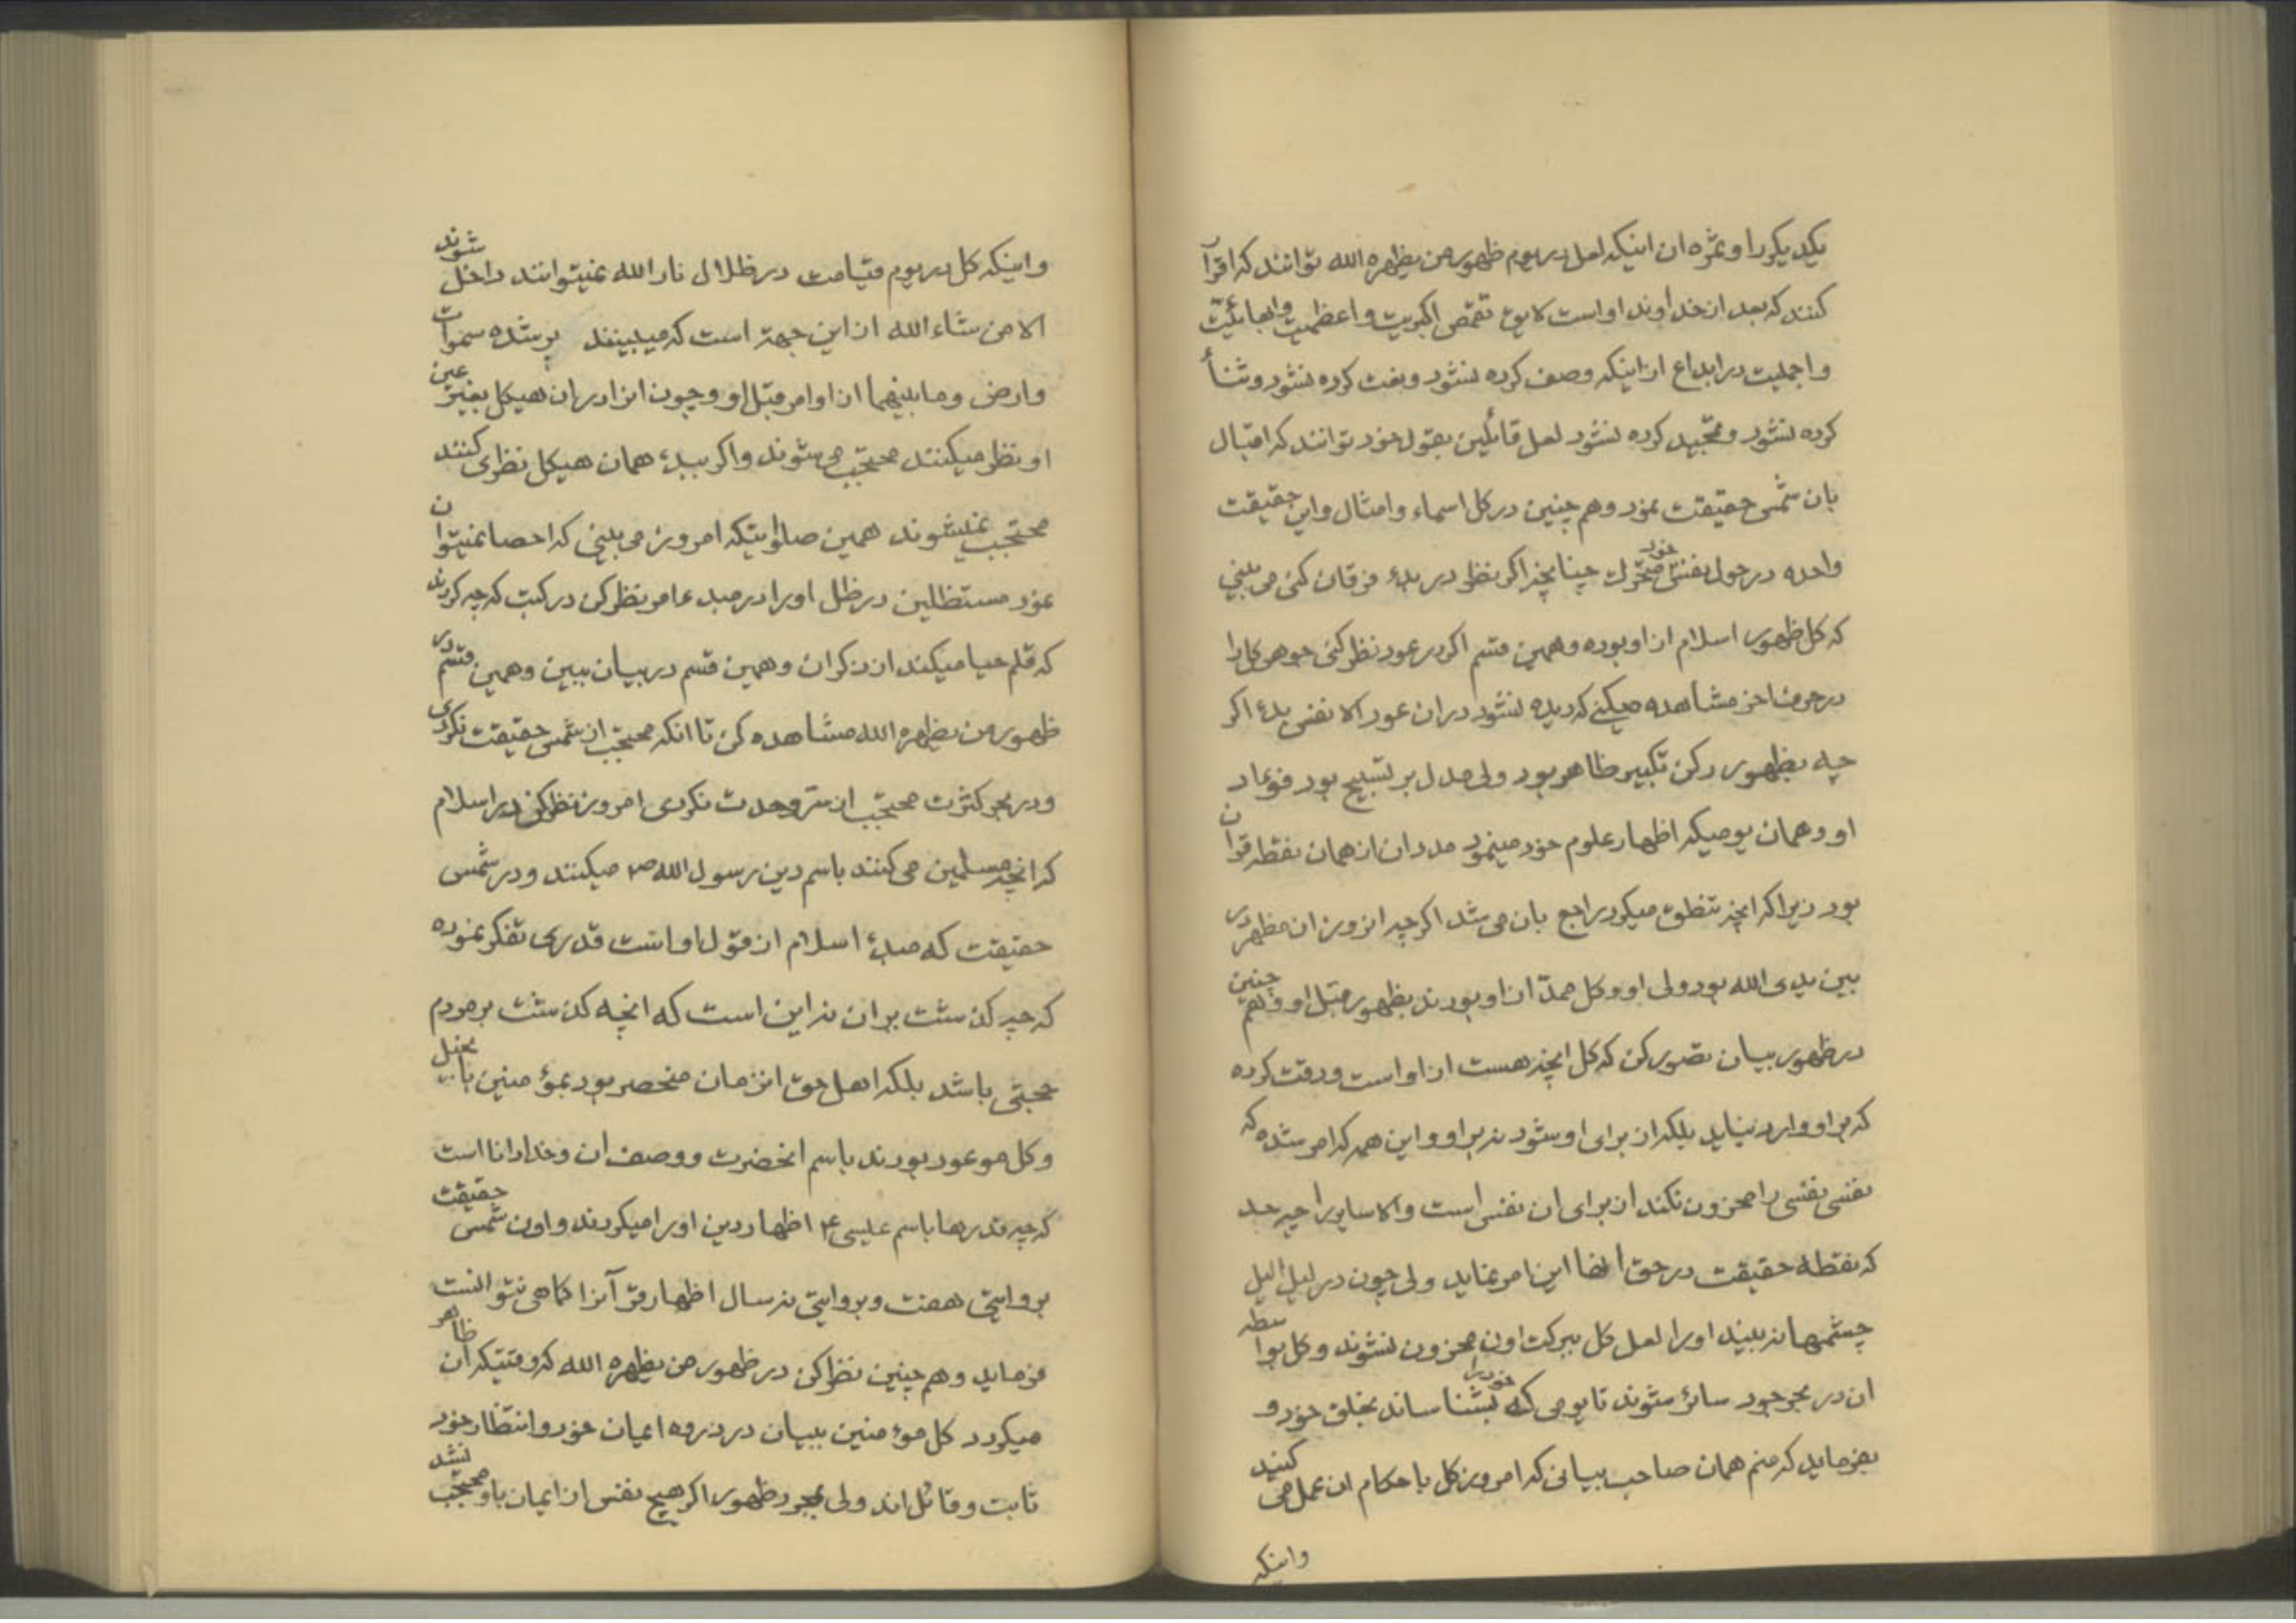 یکدیگر را و ثمره ان اینکه لعل در یوم ظهور من یظهره الله توانند که اقرار
کنند که بعد از خداوند او است لایق تقمص اکبریت و اعظمیت و ابهائیت
و اجملیت در ابداع از اینکه وصف کرده نشود و نعت کرده نشود و ثناء
کرده نشود و تمجید کرده نشود لعل قائلین بقول خود توانند که اقبال
بان شمس حقیقت نمود و هم چنین در کل اسماء و امثال و این حقیقت
واحده در حول نفس خود متحرک چنانچه اکر نظر در بدء فرقان کنی می بینی
که کل ظهور اسلام از او بوده و همین قسم اکر در عود نظر کنی جوهر کل را
در حرف اخر مشاهده میکنی که دیده نشود در ان عود الا نفس بدء اکر
چه بظهور رکن تکبیر ظاهر بود ولی مدل بر تسبیح بود فوءاد
او و همان یومیکه اظهار علوم خود مینمود مدد ان از همان نقطه قران
بود زیرا که انچه تنطق میکرد راجع بان می شد اکر چه انروز ان مظهر در
بین یدی الله بود ولی او و کل ممد از او بودند بظهور قبل او و هم چنین
در ظهور بیان تصور کن که کل انچه هست از او است و دقت کرده
که بر او وارد نیاید بلکه از برای او شود نه بر او و این همه که امر شده که
نفسی نفسی را محزون نکند از برای ان نفس است و الا سایر را چه حد
که نقطه حقیقت در حق انها این امر نماید ولی چون در لیل الیل
چشمها نه بیند او را لعل کل ببرکت اون محزون نشوند و کل بواسطه
ان در بحر جود سائر شوند تا یومی که خود را بشناساند بخلق خود و
بفرماید که منم همان صاحب بیانی که امروز کل باحکام ان عمل می کنند
واینکه
و اینکه کل در یوم قیامت در ظلال نار الله نمیتوانند داخل شوند
الا من شاء الله از این جهة است که میبینند پر شده سموات
و ارض و ما بینهما از اوامر قبل او و چون انرا در ان هیکل بغیر عین
او نظر میکنند محتجب می شوند و اکر ببدء همان هیکل نظر می کنند
محتجب نمیشوند همین صلواتیکه امروز می بینی که احصا نمیتوان
نمود مستظلین در ظل او را در مبدء امر نظر کن در کتب که چه کردند
که قلم حیا میکند از ذکر ان و همین قسم در بیان ببین و همین قسم در
ظهور من یظهره الله مشاهده کن تا انکه محتجب از شمس حقیقت نکردی
و در بحر کثرت محتجب از سر وحدت نکردی امروز نظر کن در اسلام
که انچه مسلمین می کنند باسم دین رسول الله ص میکنند و در شمس
حقیقت که مبدء اسلام از قول او است قدری تفکر نموده
که چه کذشت بر ان نه این است که انچه کذشت بر مردم
حجتی باشد بلکه اهل حق انزمان منحصر بود بمؤمنین بانجیل
و کل موعود بودند باسم انحضرت و وصف ان و خدا دانا است
که چه قدرها باسم عیسی ع اظهار دین او را میکردند و اون شمس حقیقت
بروایتی هفت و بروایتی نه سال اظهار قرآنرا کماهی نتوانست
فرماید و هم چنین نظر کن در ظهور من یظهره الله که وقتیکه ان ظاهر
میکردد کل مؤمنین ببیان در ذروه ایمان خود و انتظار خود
ثابت و قائل اند ولی بمجرد ظهور اکر هیچ نفس از ایمان باو محتجب نشد